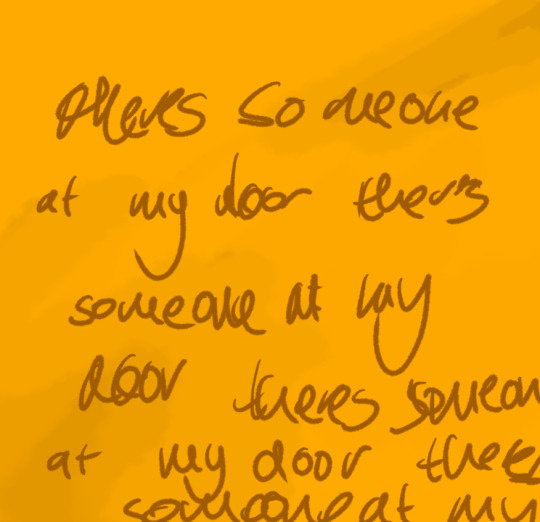 theres someone
at my door thers
someone at my
door theres someon
at my door there
someone at my